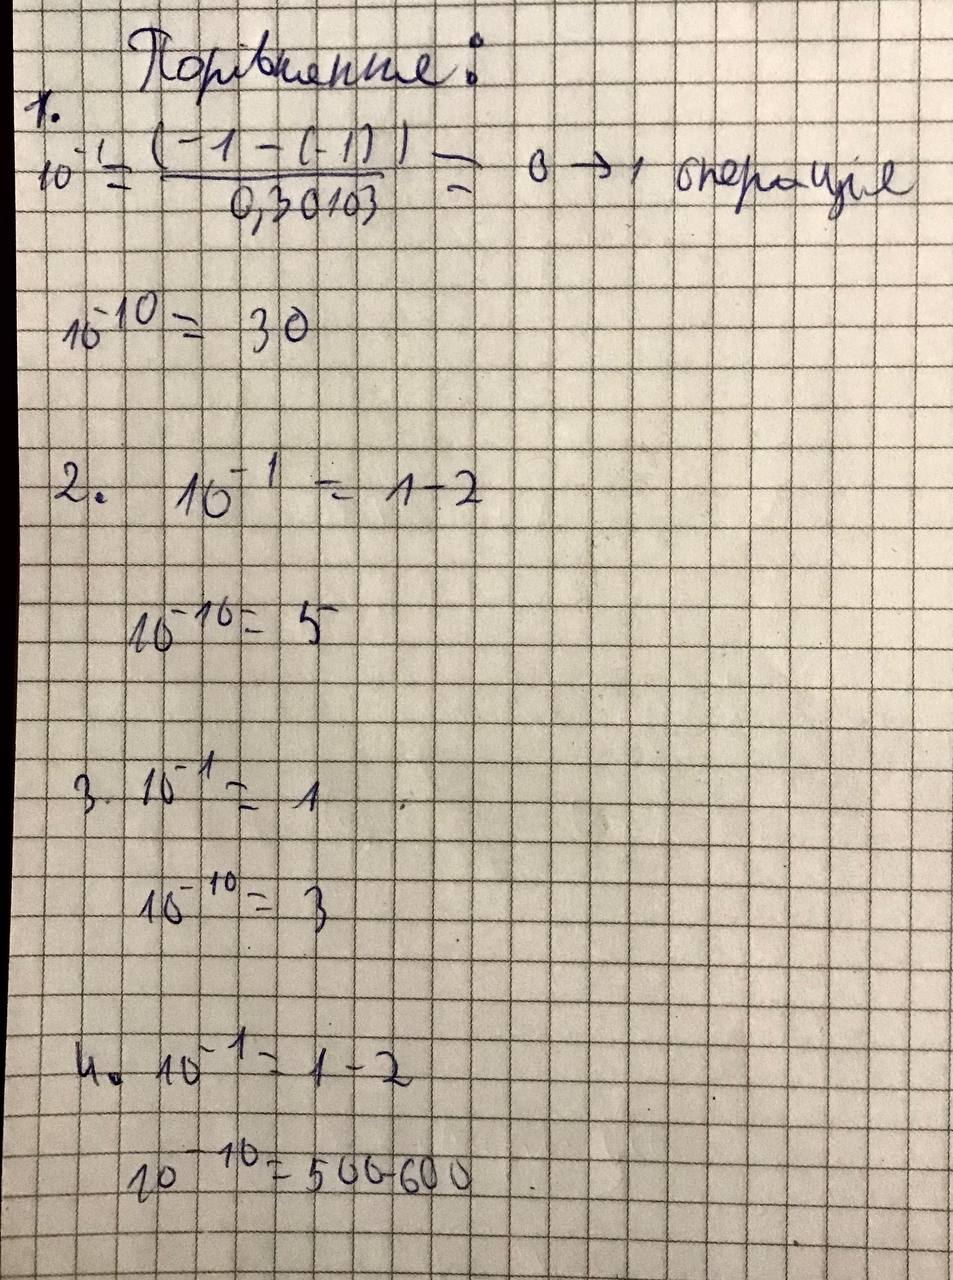 Порівняння:
1.
10⁻¹ = (-1 - (-1)) / 0,30103 = 0 → 1 операція
10⁻¹⁰ = 30
2. 10⁻¹ = 1-2
10⁻¹⁰ = 5
3. 10⁻¹ = 1
10⁻¹⁰ = 3
4. 10⁻¹ = 1-2
10⁻¹⁰ = 500-600